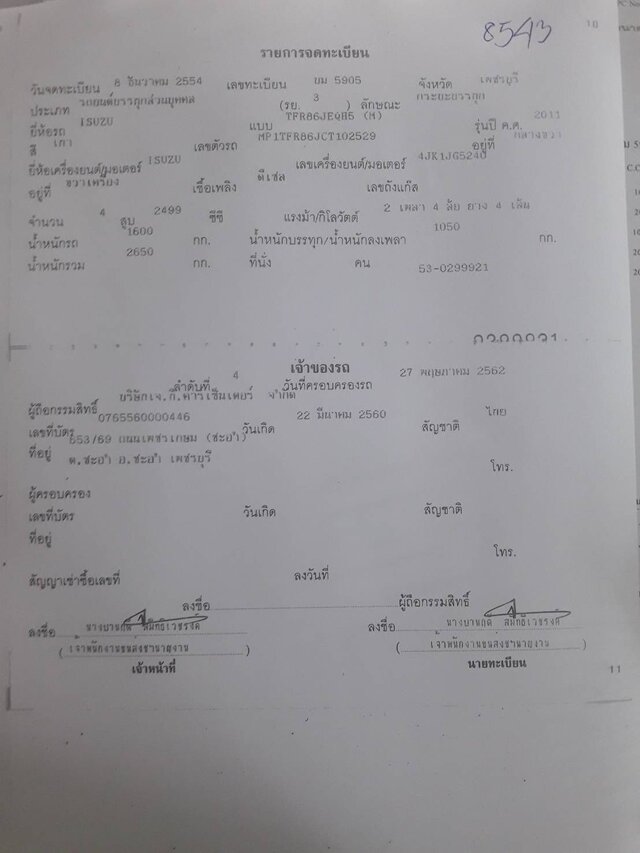 8543
10
รายการจดทะเบียน
วันจดทะเบียน 8 ธันวาคม 2554 เลขทะเบียน บม 5905 จังหวัด เพชรบุรี
ประเภท รถยนต์บรรทุกส่วนบุคคล (รย. 3 ) ลักษณะ กระบะบรรทุก
ยี่ห้อรถ ISUZU แบบ TFR86JEQH5 (M) รุ่นปี ค.ศ. 2011
สี เทา เลขตัวรถ MP1TFR86JCT102529 อยู่ที่ กลางขวา
ยี่ห้อเครื่องยนต์/มอเตอร์ ISUZU เลขเครื่องยนต์/มอเตอร์ 4JK1JG5240
อยู่ที่ ขวาเครื่อง เชื้อเพลิง ดีเซล เลขถังแก๊ส
จำนวน 4 สูบ 2499 ซีซี แรงม้า/กิโลวัตต์ 2 เพลา 4 ล้อ ยาง 4 เส้น
น้ำหนักรถ 1600 กก. น้ำหนักบรรทุก/น้ำหนักลงเพลา 1050 กก.
น้ำหนักรวม 2650 กก. ที่นั่ง คน 53-0299921
เจ้าของรถ
ลำดับที่ 4 วันที่ครอบครองรถ 27 พฤษภาคม 2562
ผู้ถือกรรมสิทธิ์ บริษัทเจ.ที.คาร์เซ็นเตอร์ จำกัด
เลขที่บัตร 0765560000446 วันเกิด 22 มีนาคม 2560 สัญชาติ ไทย
ที่อยู่ 853/69 ถนนเพชรเกษม (ชะอำ)
ต.ชะอำ อ.ชะอำ เพชรบุรี โทร.
ผู้ครอบครอง
เลขที่บัตร วันเกิด สัญชาติ
ที่อยู่
โทร.
สัญญาเช่าซื้อเลขที่ ลงวันที่
ลงชื่อ ผู้ถือกรรมสิทธิ์
ลงชื่อ ลงชื่อ
(เจ้าพนักงานขนส่งชำนาญงาน) (เจ้าพนักงานขนส่งชำนาญงาน)
เจ้าหน้าที่ นายทะเบียน
11